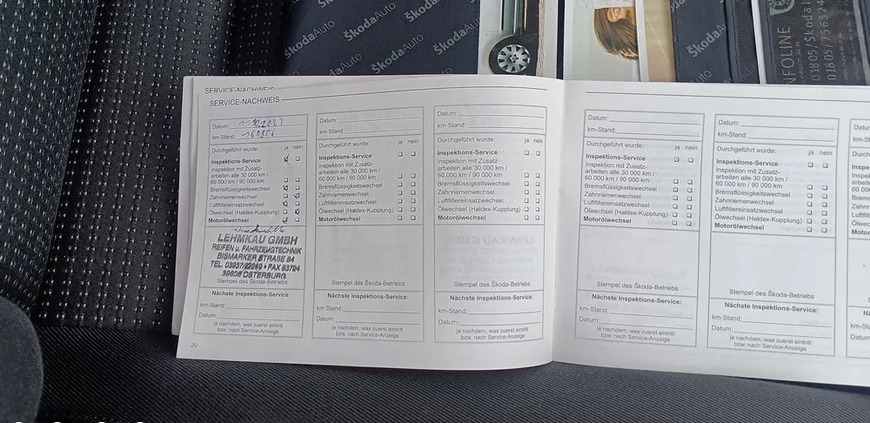 ŠkodaAuto
ŠkodaAuto
ŠkodaAuto
ŠkodaAuto
ŠkodaAuto
NFOLINE
SERVICE-NACHWEIS
SERVICE-NACHWEIS
Datum:
km-Stand: 160356
Durchgeführt wurde: ja nein
Inspektions-Service
Inspektion mit Zusatz-
arbeiten alle 30 000 km /
60 000 km / 90 000 km
Bremsflüssigkeitswechsel
Zahnriemenwechsel
Luftfiltereinsatzwechsel
Ölwechsel (Haldex-Kupplung)
Motorölwechsel
LEHMKAU GMBH
REIFEN u. FAHRZEUGTECHNIK
BISMARKER STRAßE 84
39606 OSTERBURG
Stempel des Škoda-Betriebs
Nächste Inspektions-Service:
km-Stand:
Datum:
je nachdem, was zuerst eintritt
bzw. nach Service-Anzeige
20
Datum:
km-Stand:
Durchgeführt wurde: ja nein
Inspektions-Service
Inspektion mit Zusatz-
arbeiten alle 30 000 km /
60 000 km / 90 000 km
Bremsflüssigkeitswechsel
Zahnriemenwechsel
Luftfiltereinsatzwechsel
Ölwechsel (Haldex-Kupplung)
Motorölwechsel
Stempel des Škoda-Betriebs
Nächste Inspektions-Service:
km-Stand:
Datum:
je nachdem, was zuerst eintritt
bzw. nach Service-Anzeige
Datum:
km-Stand:
Durchgeführt wurde: ja nein
Inspektions-Service
Inspektion mit Zusatz-
arbeiten alle 30 000 km /
60 000 km / 90 000 km
Bremsflüssigkeitswechsel
Zahnriemenwechsel
Luftfiltereinsatzwechsel
Ölwechsel (Haldex-Kupplung)
Motorölwechsel
Stempel des Škoda-Betriebs
Nächste Inspektions-Service:
km-Stand:
Datum:
je nachdem, was zuerst eintritt
bzw. nach Service-Anzeige
Datum:
km-Stand:
Durchgeführt wurde: ja nein
Inspektions-Service
Inspektion mit Zusatz-
arbeiten alle 30 000 km /
60 000 km / 90 000 km
Bremsflüssigkeitswechsel
Zahnriemenwechsel
Luftfiltereinsatzwechsel
Ölwechsel (Haldex-Kupplung)
Motorölwechsel
Stempel des Škoda-Betriebs
Nächste Inspektions-Service:
km-Stand:
Datum:
je nachdem, was zuerst eintritt
bzw. nach Service-Anzeige
Datum:
km-Stand:
Durchgeführt wurde: ja nein
Inspektions-Service
Inspektion mit Zusatz-
arbeiten alle 30 000 km /
60 000 km / 90 000 km
Bremsflüssigkeitswechsel
Zahnriemenwechsel
Luftfiltereinsatzwechsel
Ölwechsel (Haldex-Kupplung)
Motorölwechsel
Stempel des Škoda-Betriebs
Nächste Inspektions-Service:
km-Stand:
Datum:
je nachdem, was zuerst eintritt
bzw. nach Service-Anzeige